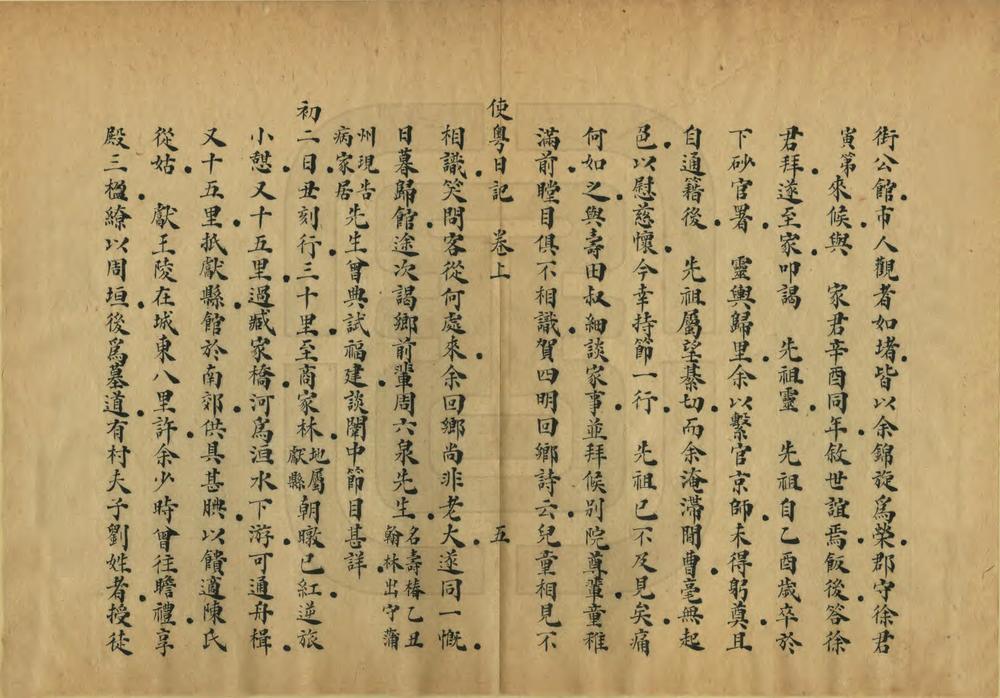 街公館市人觀者如堵皆以余錦旋爲榮郡守徐君
寅第來候與　家君辛酉同年敘世誼焉飯後答徐
君拜遂至家叩謁　先祖靈　先祖自乙酉歲卒於
下砂官署　靈輿歸里余以繫官京師未得躬奠且
自通籍後　先祖屬望綦切而余淹滯閒曹毫無起
色以慰慈懷今幸持節一行　先祖已不及見矣痛
何如之與壽田叔細談家事並拜候別院尊輩童稚
滿前瞠目俱不相識賀四明回鄉詩云兒童相見不
使粵日記　卷上　五
相識笑問客從何處來余回鄉尚非老大遂同一慨
日暮歸館途次謁鄉前輩周六泉先生名壽椿乙丑翰林出守蒲
州現告病家居先生曾典試福建談闈中節目甚詳
初二日丑刻行三十里至商家林地屬獻縣朝暾已紅逆旅
小憩又十五里過臧家橋河爲洹水下游可通舟楫
又十五里抵獻縣館於南郊供具甚腆以饋適陳氏
從姑　獻王陵在城東八里許余少時曾往瞻禮享
殿三楹繚以周垣後爲墓道有村夫子劉姓者授徒